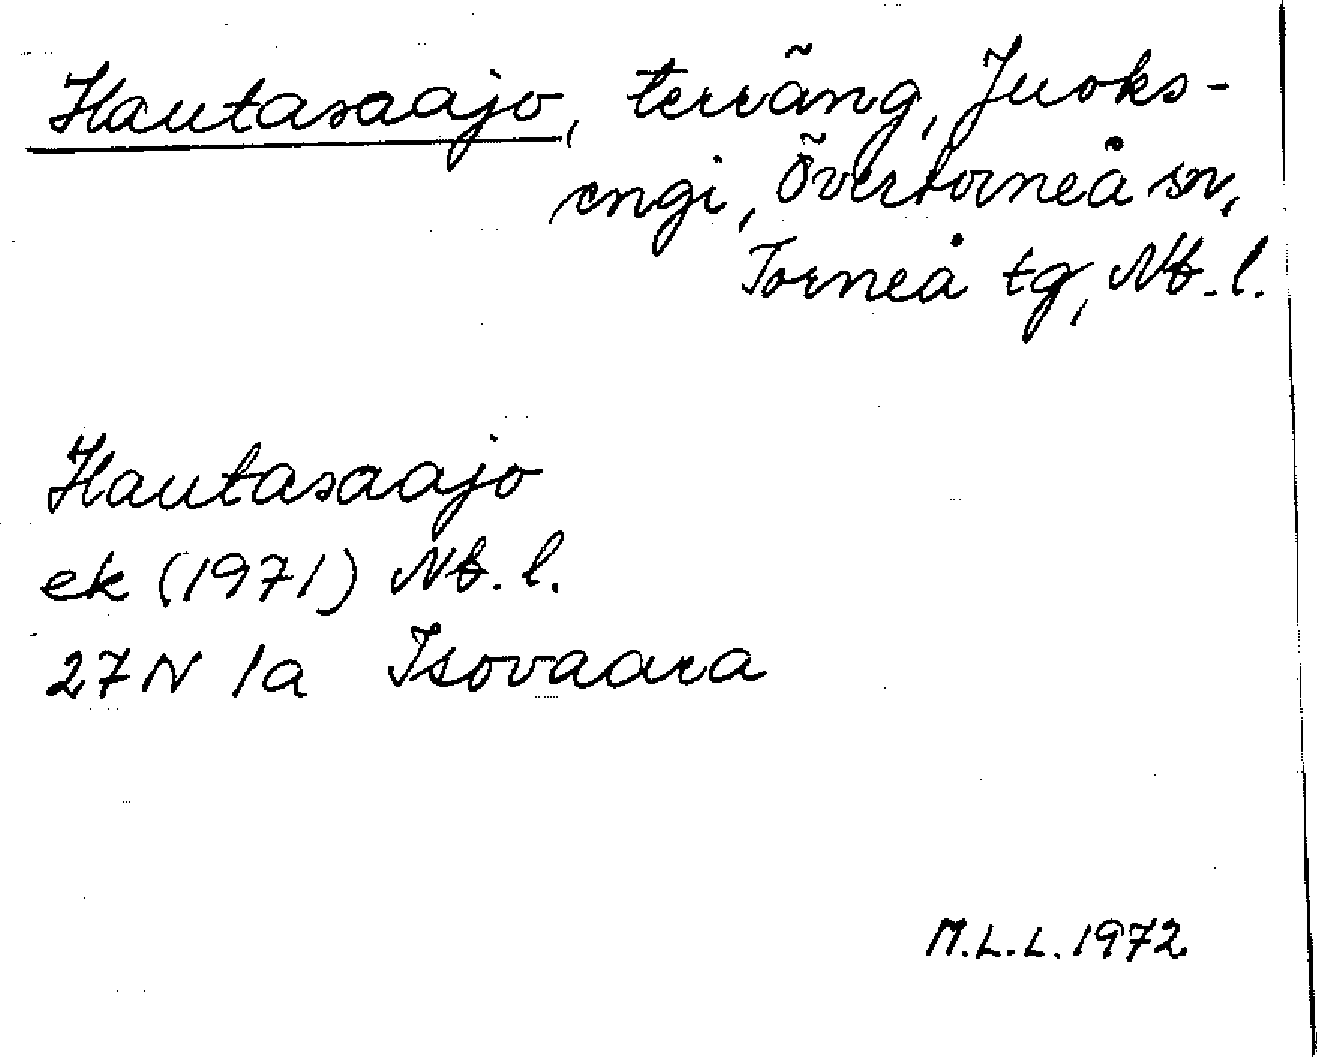 Hautasaajo, terräng, Juoks-
engi, Övertorneå sn,
Torneå tg, Nb. l.
Hautasaajo
ek (1971) Nb. l.
27 N 1a Isovaara
M.L.L. 1972